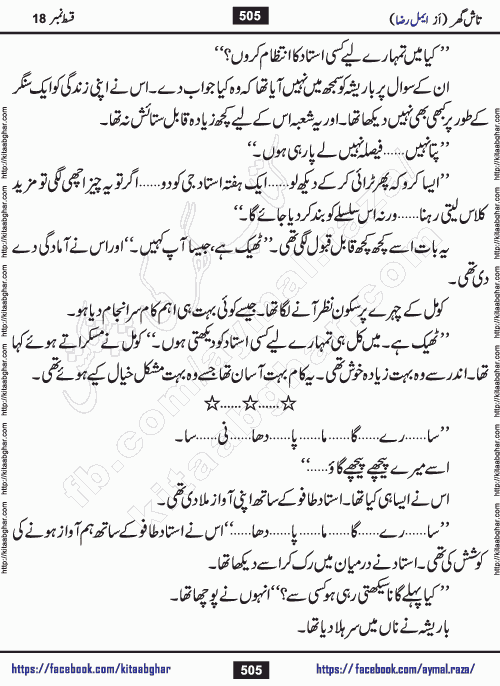 قسط نمبر 18
505
تاش گھر (از ایمل رضا)
’’کیا میں تمہارے لیے کسی استاد کا انتظام کروں؟‘‘
ان کے سوال پر باریشہ کو سمجھ میں نہیں آیا تھا کہ وہ کیا جواب دے۔ اس نے اپنی زندگی کو ایک سنگر
کے طور پر کبھی بھی نہیں دیکھا تھا۔ اور یہ شعبہ اس کے لیے کچھ زیادہ قابل ستائش نہ تھا۔
’’پتا نہیں......فیصلہ نہیں لے پا رہی ہوں۔‘‘
’’ایسا کرو کہ پھر ٹرائی کر کے دیکھ لو......ایک ہفتہ استاد جی کو دو......اگر تو یہ چیز اچھی لگی تو مزید
کلاس لیتی رہنا......ورنہ اس سلسلے کو بند کر دیا جائے گا۔‘‘
یہ بات اسے کچھ کچھ قابل قبول لگی تھی۔’’ٹھیک ہے، جیسا آپ کہیں۔‘‘اور اس نے آمادگی دے
دی تھی۔
کومل کے چہرے پر سکون نظر آنے لگا تھا۔ جیسے کوئی بہت ہی اہم کام سرانجام دیا ہو۔
’’ٹھیک ہے۔ میں کل ہی تمہارے لیے کسی استاد کو دیکھتی ہوں۔‘‘ کومل نے مسکراتے ہوئے کہا
تھا۔ اندر سے وہ بہت زیادہ خوش تھی۔ یہ کام بہت آسان تھا جسے وہ بہت مشکل خیال کیے ہوئے تھی۔
☆......☆......☆
’’سا......رے......گا......ما......پا......دھا......نی......سا۔
اسے میرے پیچھے پیچھے گاؤ......‘‘
اس نے ایسا ہی کیا تھا۔ استاد طافو کے ساتھ اپنی آواز ملا دی تھی۔
’’سا......رے......گا......ما......پا......دھا......‘‘اس نے استاد طافو کے ساتھ ہم آواز ہونے کی
کوشش کی تھی۔ استاد نے درمیان میں رک کر اسے دیکھا تھا۔
’’کیا پہلے گانا سیکھتی رہی ہو کسی سے؟‘‘انہوں نے پوچھا تھا۔
باریشہ نے ناں میں سر ہلا دیا تھا۔
https://facebook.com/kitaabghar
505
https://facebook.com/aymal.raza/
http://kitaabghar.com
http://kitaabghar.com
http://kitaabghar.com
http://kitaabghar.com
http://kitaabghar.com
http://kitaabghar.com
http://kitaabghar.com
http://kitaabghar.com